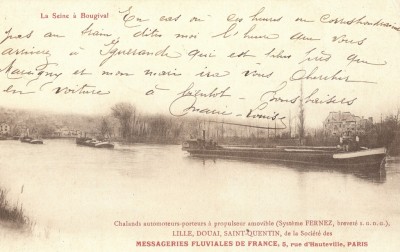 La Seine à Bougival
En cas ou ces heures en correspondraient
pas au train dites moi l'heure que vous
arrivez à Iguerande qui est plus près que
Marcigny et mon mari ira vous chercher
en voiture à bientôt - Bons baisers
Marie-Louise
Chalands automoteurs-porteurs à propulseur amovible (Système FERNEZ, breveté s. G. D. G.)
LILLE, DOUAI, SAINT-QUENTIN, de la Société des
MESSAGERIES FLUVIALES DE FRANCE, 5, rue d'Hauteville, PARIS